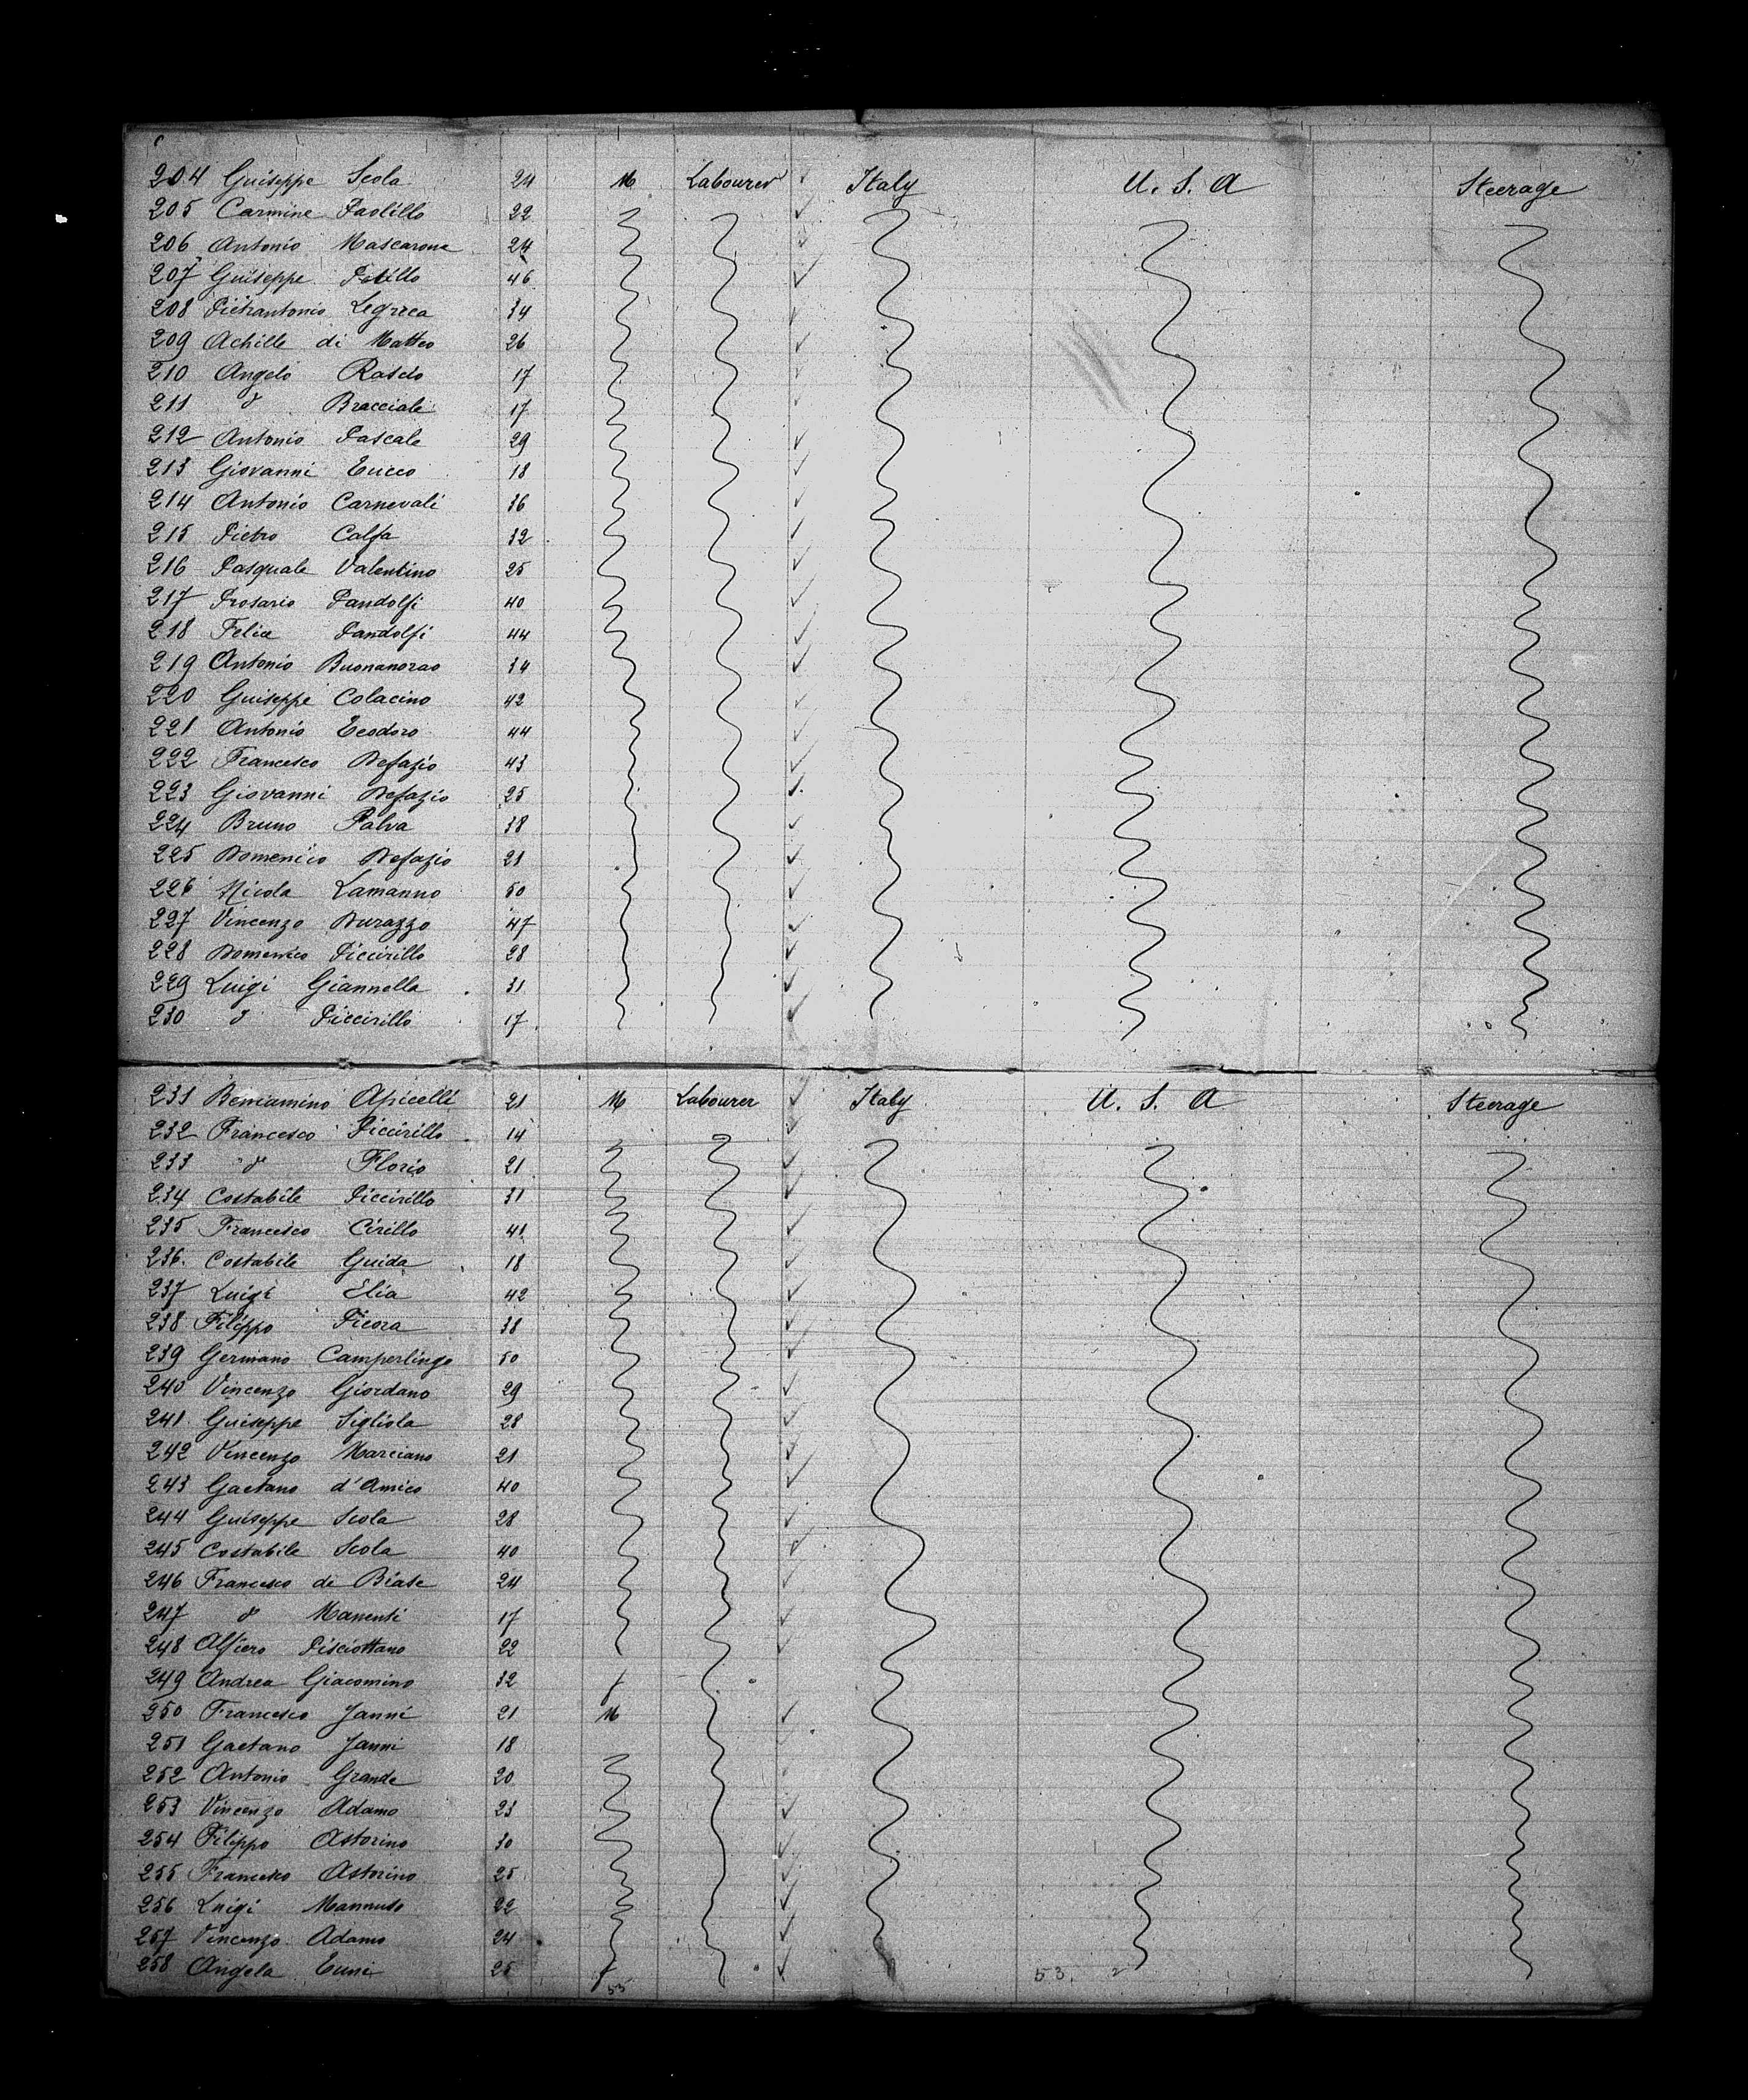 204 Guiseppe Scola 24 M Labourer Italy U. S. A Steerage
205 Carmine Paolillo 22
206 Antonio Mascarona 24
207 Guiseppe Petillo 46
208 Pietrantonio Legreca 34
209 Achille di Matteo 26
210 Angelo Rascio 17
211 d° Bracciale 17
212 Antonio Pascale 29
213 Giovanni Tucco 18
214 Antonio Carnevali 36
215 Pietro Calfa 32
216 Pasquale Valentino 25
217 Prosario Pandolfi 40
218 Felice Pandolfi 44
219 Antonio Buonanorao 34
220 Guiseppe Colacino 42
221 Antonio Teodoro 44
222 Francesco Defazio 43
223 Giovanni Defazio 25
224 Bruno Palva 38
225 Domenico Defazio 21
226 Nicola Lamanno 50
227 Vincenzo Durazzo 47
228 Domenico Piccirillo 28
229 Luigi Giannella 31
230 d° Piccirillo 17
231 Beniamino Apicelli 21 M Labourer Italy U. S. A Steerage
232 Francesco Piccirillo 14
233 d° Florio 21
234 Costabile Piccirillo 31
235 Francesco Cirillo 41
236. Costabile Guida 18
237 Luigi Elia 42
238 Filippo Picora 38
239 Germano Camperlingo 50
240 Vincenzo Giordano 29
241 Guiseppe Sigliola 28
242 Vincenzo Marciano 21
243 Gaetano d'Amico 40
244 Guiseppe Scola 28
245 Costabile Scola 40
246 Francesco di Biase 24
247 d° Manenti 17
248 Alfiero Pisciottano 22
249 Andrea Giacomino 32 f
250 Francesco Janni 21 M
251 Gaetano Janni 18
252 Antonio Grande 20
253 Vincenzo Adamo 23
254 Filippo Astorino 30
255 Francesco Astorino 25
256 Luigi Mannuso 22
257 Vincenzo Adamo 24
258 Angela Tuni 25 f
55 53. 2